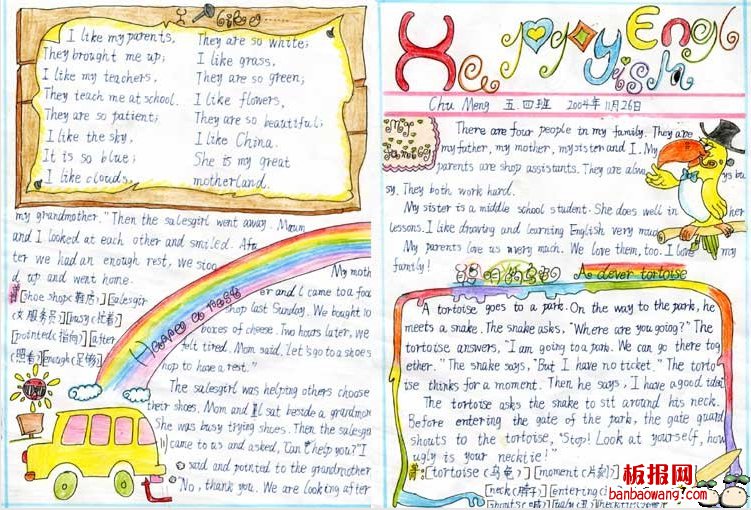 I like
I like my parents,
They brought me up;
I like my teachers,
They teach me at school.
They are so patient;
I like the sky,
It is so blue;
I like clouds,
They are so white;
I like grass,
They are so green;
I like flowers,
They are so beautiful;
I like China.
She is my great
motherland.
Have a rest
My moth
er and I came to a foo
shop last Sunday. We bought 10
boxes of cheese. Two hours later, we
felt tired. Mom said, "let's go to a shoes
hop to have a rest."
The salesgirl was helping others choose
their shoes. Mom and I sat beside a grandmom
She was busy trying shoes. Then the salesgi
came to us and asked, "Can I help you?" I
said and pointed to the grandmother
"No, thank you. We are looking after
my grandmother." Then the salesgirl went away. Mum
and I looked at each other and smiled. Afa
ter we had an enough rest, we stoo
d up and went home.
[shoe shop(鞋店)][salesgir
(女服务员)][busy(忙着)]
[pointed(指向)][after
(照看)][enough(足够)]
Happy English
Chu Meng 五四班 2004年11月26日
My
family
There are four people in my family. They are
my father, my mother, my sister and I. My
parents are shop assistants. They are alwa ys bu
sy. They both work hard.
My sister is a middle school student. She does well in her
lessons. I like drawing and learning English very mu
My parents love us very much. We love them, too. I love my
family!
聪明的乌龟 A clever tortoise
A tortoise goes to a park. On the way to the park, he
meets a snake. The snake asks, "Where are you going?" The
tortoise answers, "I am going to a park. We can go there tog
ether." The snake says, "But I have no ticket." The torto
ise thinks for a moment. Then he says, I have a good idea!
The tortoise asks the snake to sit around his neck.
Before entering the gate of the park, the gate guard
shouts to the tortoise, "Stop! Look at yourself, how
ugly is your necktie!"
[tortoise(乌龟)][moment(片刻)]
[neck(脖子)][entering
板报网
banbaowang.com